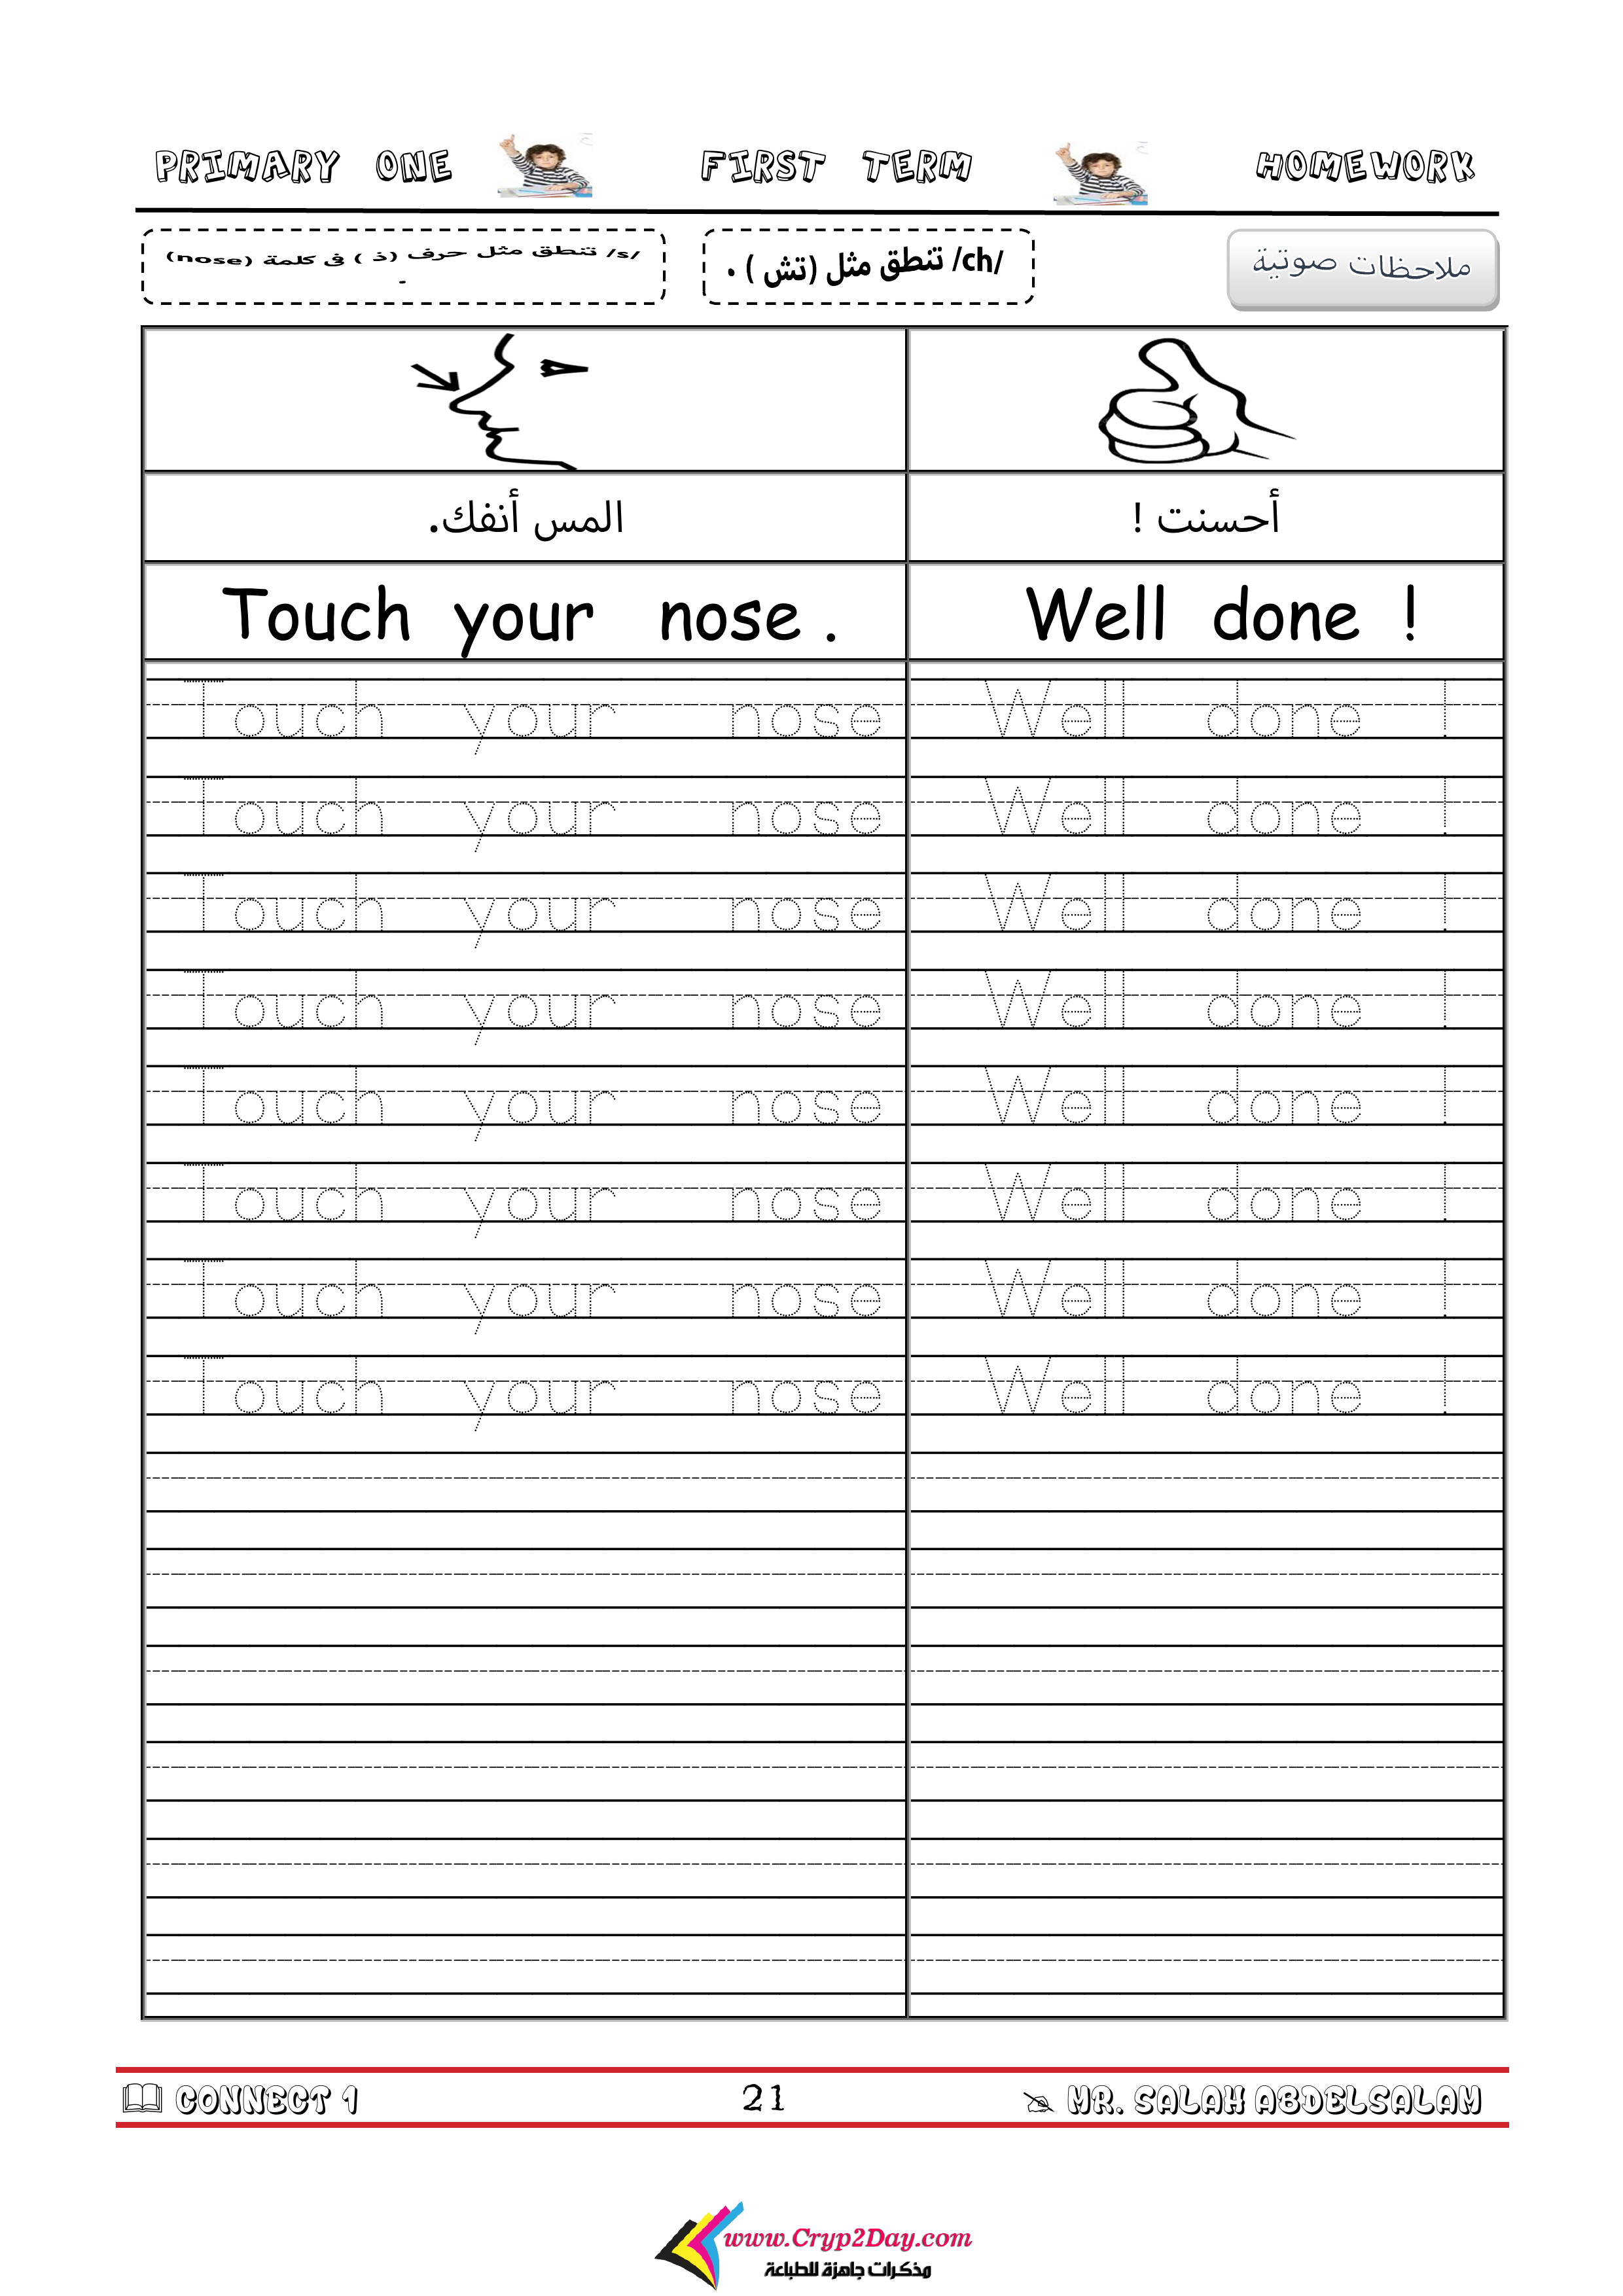 PRIMARY ONE FIRST TERM HOMEWORK
ملاحظات صوتية
/ch/ تنطق مثل (تش ) .
/s/ تنطق مثل حرف (ذ ) فى كلمة (nose)
.
المس أنفك. أحسنت !
Touch your nose . Well done !
Touch your nose Well done !
Touch your nose Well done !
Touch your nose Well done !
Touch your nose Well done !
Touch your nose Well done !
Touch your nose Well done !
Touch your nose Well done !
Touch your nose Well done !
CONNECT 1 21 MR. SALAH ABDELSALAM
www.Cryp2Day.com
مذكرات جاهزة للطباعة